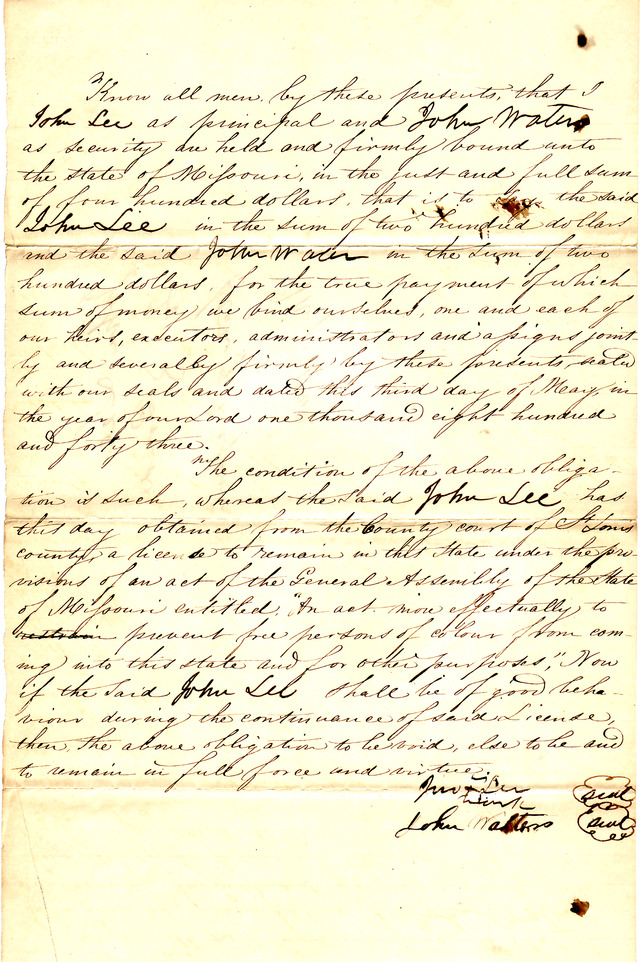 Know all men by these presents, that I
John Lee as principal and John Waters
as security are held and firmly bound unto
the state of Missouri, in the just and full sum
of four hundred dollars, that is to the said
John Lee in the sum of two hundred dollars
and the said John Water in the sum of two
hundred dollars, for the true payment of which
sum of money we bind ourselves, one and each of
our heirs, executors, administrators and assigns joint-
ly and severalby firmly by these presents, sealed
with our seals and dated this third day of May, in
the year of our Lord one thousand eight hundred
and forty three.
The condition of the above obliga-
tion is such, whereas the said John Lee has
this day obtained from the County court of St Louis
county, a license to remain in this State under the pro-
visions of an act of the General Assembly of the State
of Missouri entitled, "An act more effectually to
restrain prevent free persons of colour from com-
ing into this state and for other purposes," Now
if the said John Lee shall be of good beha-
viour during the continuance of said License,
then, the above obligation to be void, else to be and
to remain in full force and virtue.
Jno Lee seal
mark
John Walters seal